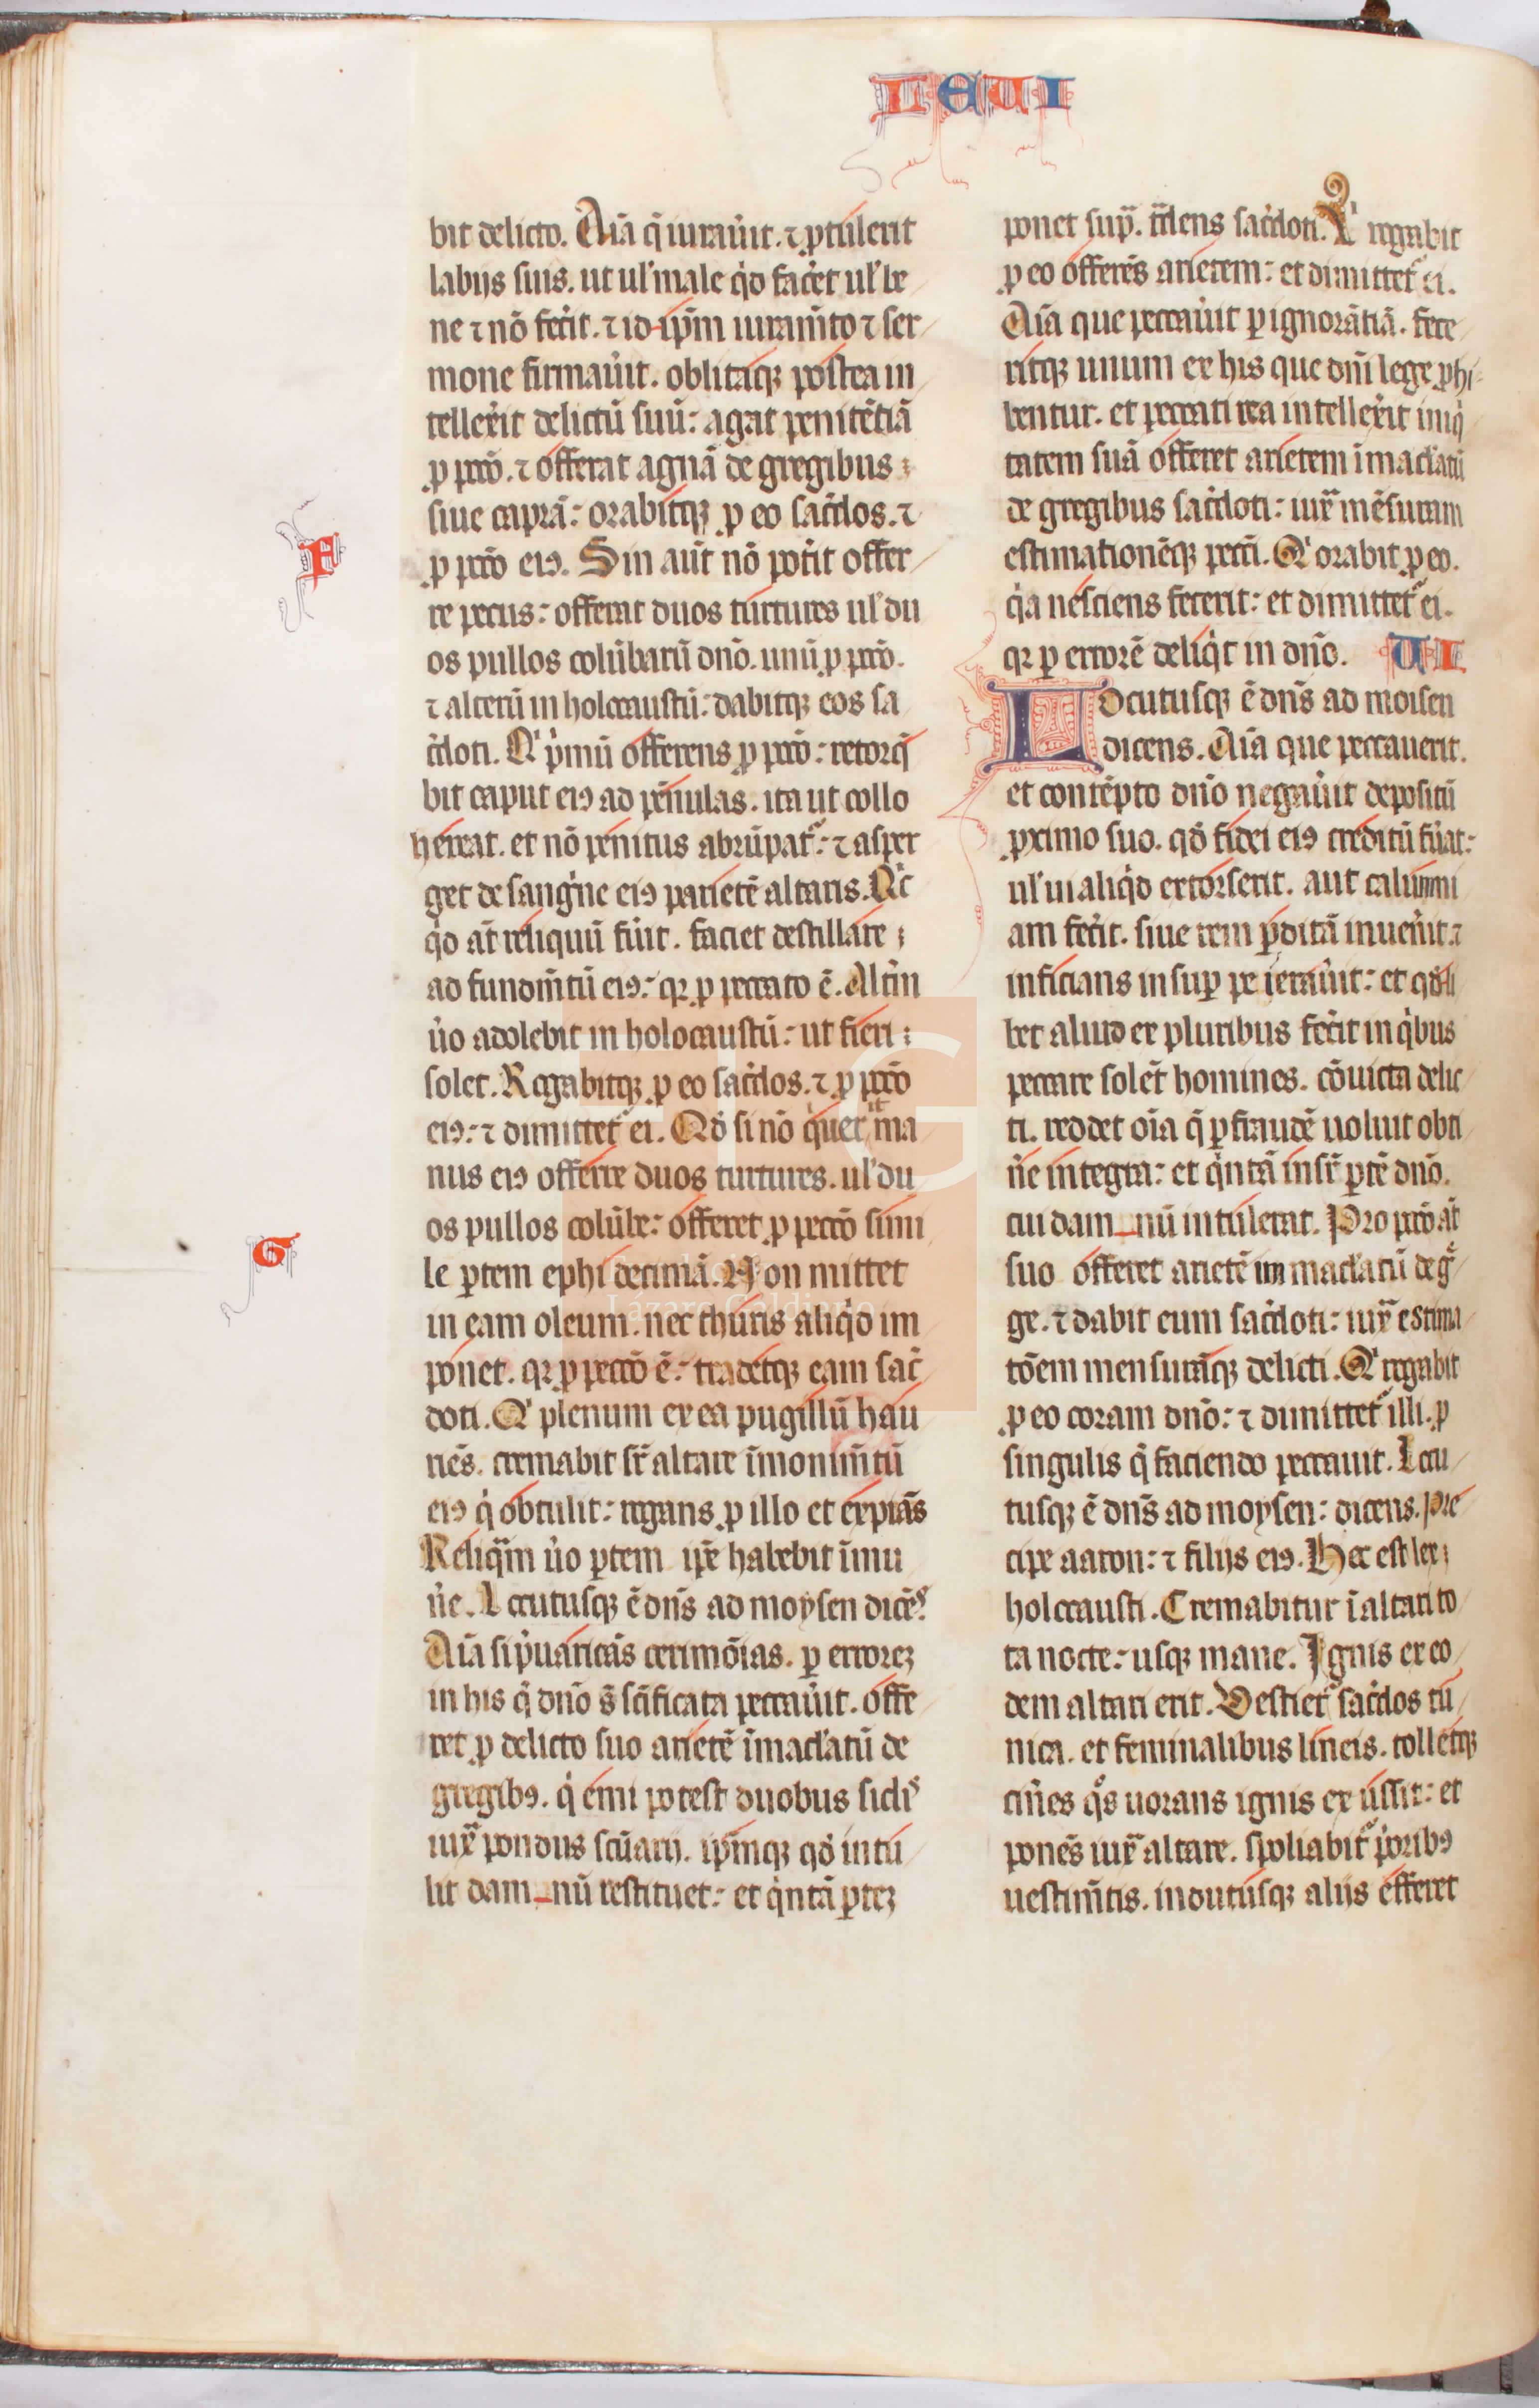 LEUI
bit delicto. Aīa q̄ iurau̇it. ⁊ ꝓtulerit
labijs suis. ut ul' male qd̓ fac̓et ul' be
ne ⁊ nō fec̓it. ⁊ id ip̄m iuram̄to ⁊ ser
mone firmau̓it. oblitaqꝫ postea in
tellex̓it delictū suū: agat penitētiā
ꝓ pctō. ⁊ offerat agnā de gregibus
siue caprā: orabitqꝫ ꝓ eo sac̓dos. ⁊
F
ꝓ pctō eiꝰ. Sin aūt nō pot̓it offer
re pecus: offerat duos turtures ul' du
os pullos colūbarū dn̄o. unū ꝓ pctō.
⁊ alterū in holocaustū: dabitqꝫ eos sa
c̓doti. Qⁱ p̓mū offerens ꝓ pctō: retorq̄
bit caput eiꝰ ad pēnulas. ita ut collo
hereat. et nō penitus abrūpat᷑: ⁊ asper
get de sang̓ne eiꝰ parietē altaris. Qⁱc
qd̓ aūt reliquū fu̓it. faciet destillare
ad fundam̄tū eiꝰ: qꝛ ꝓ peccato ē. Alt̓m
u̓o adolebit in holocaustū: ut fieri
solet. Rogabitqꝫ ꝓ eo sac̓dos. ⁊ ꝓ pctō
eiꝰ: ⁊ dimittet᷑ ei. Qd̓ si nō q̓uerit ma
nus eiꝰ offerre duos turtures. ul' du
os pullos colūbe: offeret ꝓ pctō simi
G
le ꝑtem ephi decimā. Non mittet
in eam oleum. nec thuris aliqd̓ im
ponet. qꝛ ꝓ pctō ē: tradetqꝫ eam sac̓
doti. Qⁱ plenum ex ea pugillū hau
riēs. cremabit sr̄ altare ī monim̄tū
eiꝰ q̓ obtulit: rogans ꝓ illo et expiās
Reliqͣm u̓o ꝑtem ip̄e habebit ī mu
n̓e. Locutusqꝫ ē dn̄s ad moysen dicēs
Aīa si p̓uaricās cerimōias. ꝑ erroreꝫ
in his q̄ dn̄o st̄ sc̄ificata peccau̓it. offe
ret ꝓ delicto suo arietē īmac̓latū de
gregibꝰ. q̓ emi potest duobus siclis
iuxͣ pondus sc̄uarij. ip̄mqꝫ qd̓ intu
lit dam_nū restituet: et q̓ntā ꝑteꝫ
ponet supͣ. tͣdens sac̓doti. Qⁱ rogabit
ꝓ eo offerēs arietem: et dimittet᷑ ei.
Aīa que peccau̓it ꝑ ignorātiā. fece
ritqꝫ unum ex his que dn̄i lege ꝓhi
bentur. et peccati rea intellex̓it iniq̓
tatem suā offeret arietem īmac̓latū
de gregibus sac̓doti: iuxͣ mēsuram
estimationēqꝫ pcc̄i. Qⁱ orabit ꝓ eo.
q̓a nesciens fecerit: et dimittet᷑ ei.
qꝛ ꝑ errorē deliq̓t in dn̄o. UI
Locutusqꝫ ē dn̄s ad moisen
dicens. Aīa que peccauerit.
et contēpto dn̄o negau̓it depositū
ꝓximo suo. qd̓ fidei eiꝰ creditū fu̓at:
ul' ui aliqd̓ extorserit. aut calumni
am fec̓it. siue rem ꝑditā inuen̓it. ⁊
inficians insuꝑ peierau̓it: et qd̓li
bet aliud ex pluribus fec̓it in q̓bus
peccare solēt homines. cōuicta delic
ti. reddet oīa q̄ ꝑ fraudē uoluit obti
n̓e integra: et q̓ntā insuꝑ ꝑtē dn̄o.
cui dam_nū intulerat. Pro pctō aūt
suo offeret arietē immac̓latū de gͤ
ge. ⁊ dabit eum sac̓doti: iuxͣ estima
tōem mensurāqꝫ delicti. Qⁱ rogabit
ꝓ eo coram dn̄o: ⁊ dimittet᷑ illi. ꝓ
singulis q̄ faciendo peccauit. Locu
tusqꝫ ē dn̄s ad moysen: dicens. Pre
cipe aaron: ⁊ filijs eiꝰ. Hec est lex
holocausti. Cremabitur ī altari to
ta nocte: usqꝫ mane. Ignis ex eo
dem altari erit. Vestiet᷑ sac̓dos tu
nica. et feminalibus lineis. tolletqꝫ
cin̓es q̊s uorans ignis exussit: et
ponēs iuxͣ altare. spoliabit᷑ p̓oribꝰ
uestim̄tis. indutusqꝫ alijs efferet